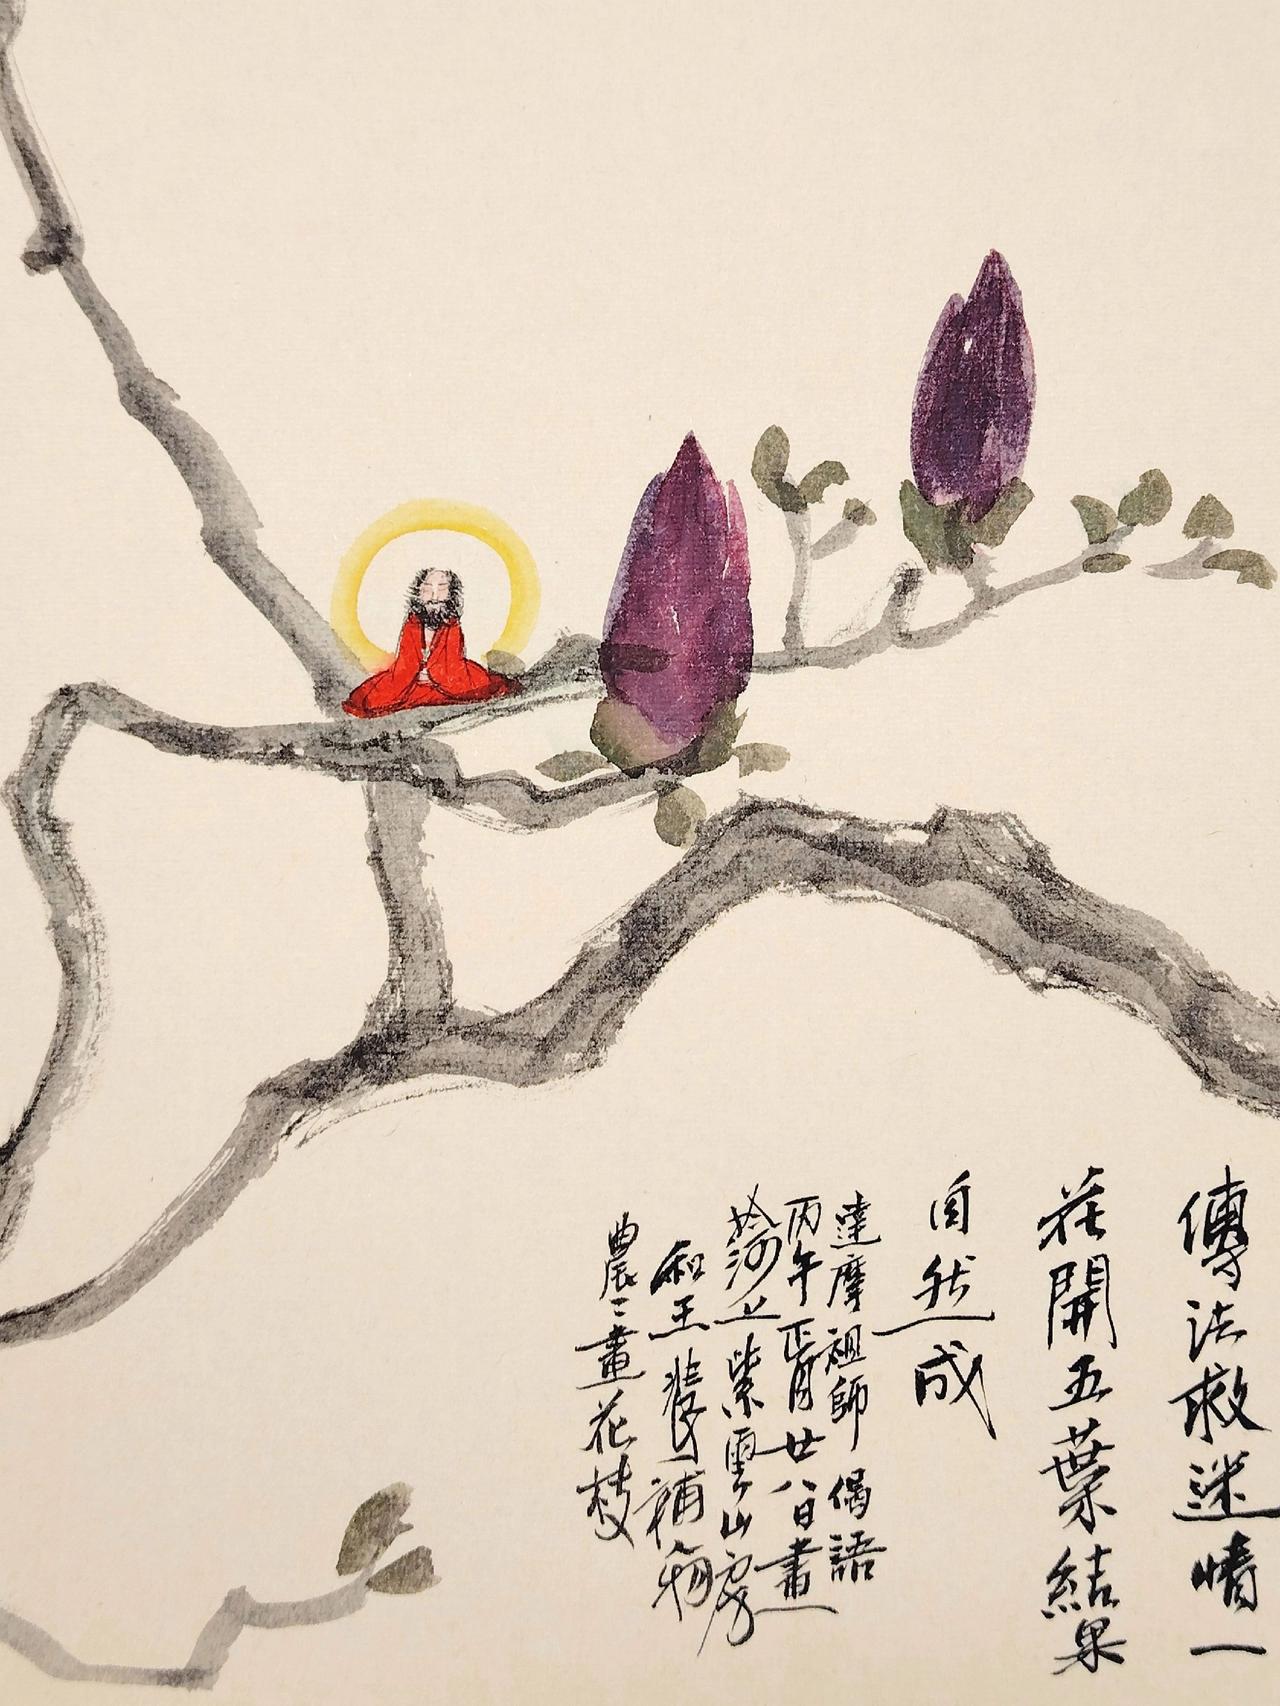 傳法救迷情一
花開五葉結果
自然成
達摩祖師偈語
丙午正月廿八日畫
於河上紫雲山房
和王裴補物
農農畫花枝